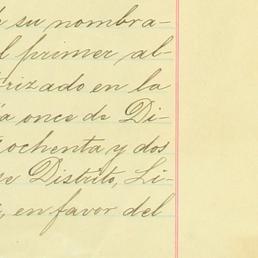 su nombra-
l primer al-
rizado en la
a once de Di-
ochenta y dos
se Distrito, Li-
, en favor del